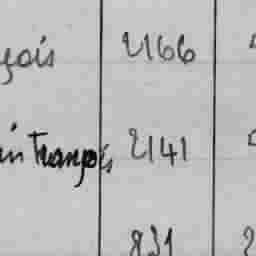 çois 2166
in François 2141
831